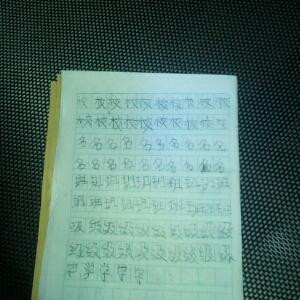 校校校校校校校校校校
校校校校校校校校校校
名名名名名名名名名名
名名名名名名名名名名
班班班班班班班班班班
班班班班班班班班班班
级级级级级级级级级级
级级级级级级级级级级
字学字字字